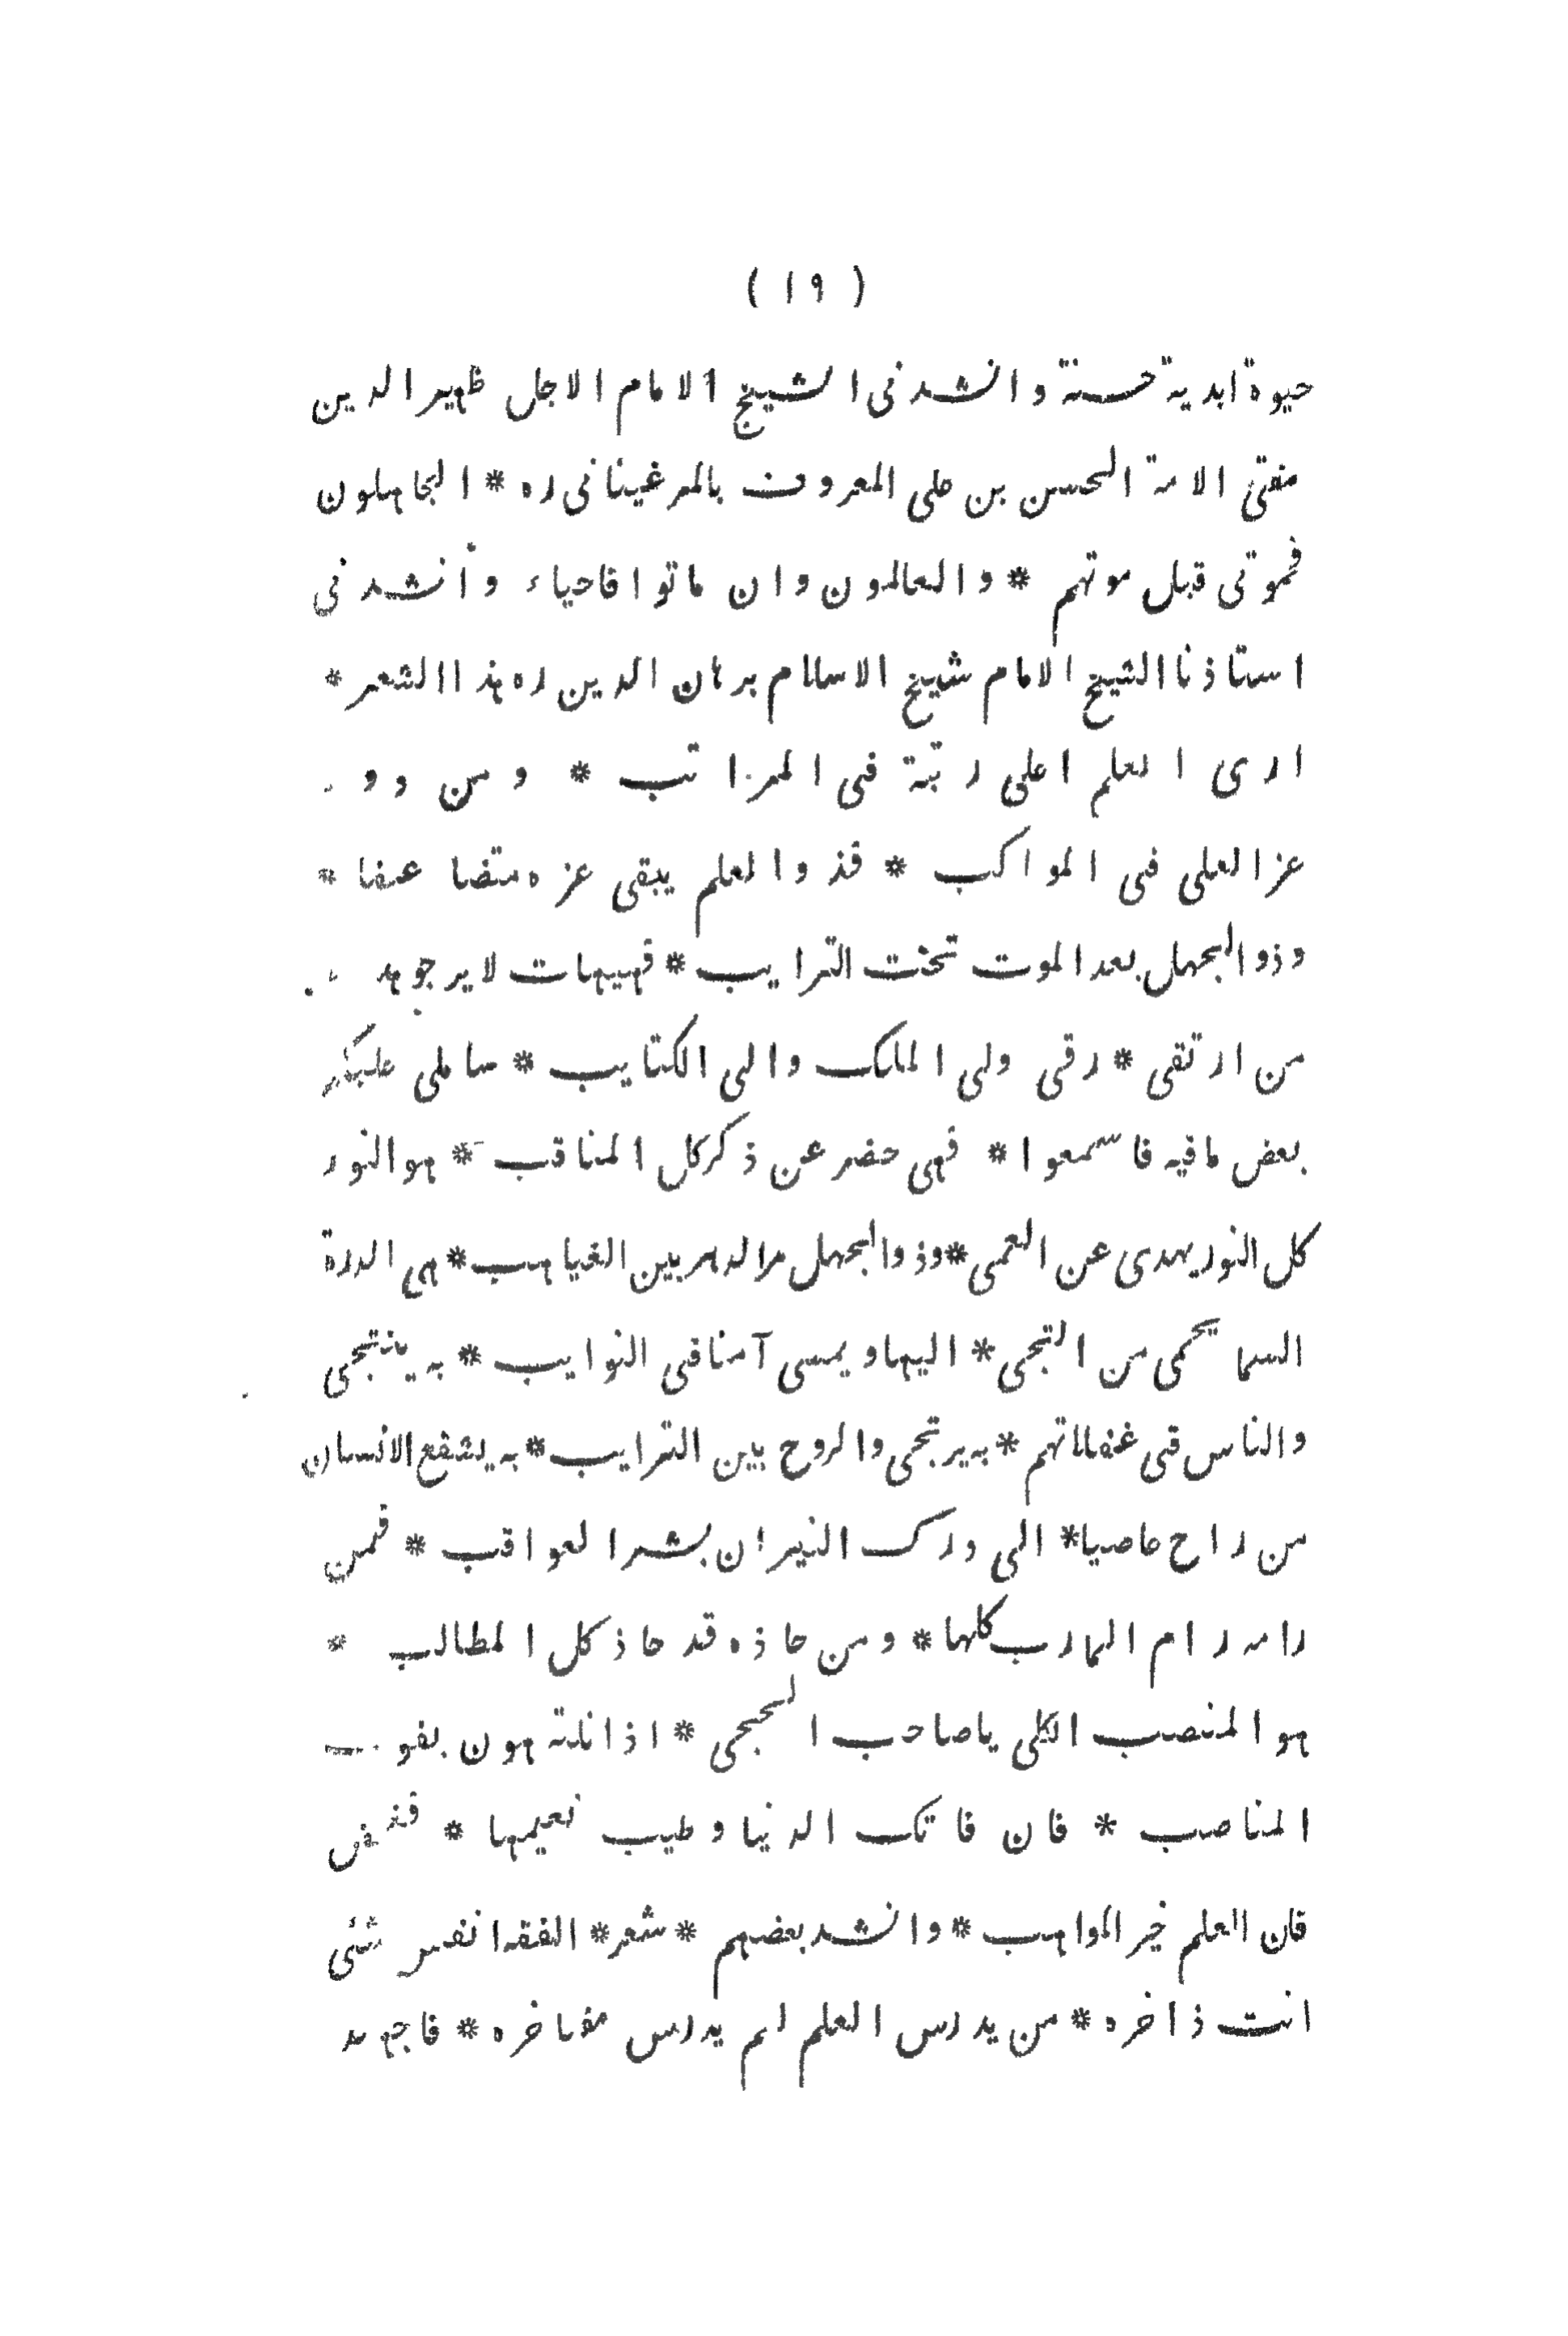 ( ١٩ )
حيوة ابدية حسنة وانشدنى الشيخ الامام الاجل ظهير الدين
مفتى الامة الحسن بن على المعروف بالمرغينانى ره * الجاهلون
فموتى قبل موتهم * والعالمون وان ماتوا فاحياء وأنشدنى
استاذنا الشيخ الامام شيخ الاسلام برهان الدين ره هذا الشعر *
ارى العلم اعلى رتبة فى المراتب * ومن دو
عز العلى فى المواكب * فذو العلم يبقى عزه متضاعفا *
وذو الجهل بعد الموت تحت الترايب * فهيهات لا يرجو
من ارتقى * رقى ولى الملك والى الكتايب * ساملى عليكم
بعض مافيه فاسمعوا * فهى حضر عن ذكر كل المناقب * هو النور
كل النور يهدى عن العمى * وذو الجهل مر الدهر بين الغياهب * هى الدرة
السما تحمى من التجى * اليها ويمسى آمنا فى النوايب * به ينتجى
والناس فى غفلاتهم * به يرتجى والروح بين الترايب * به يشفع الانسان
من راح عاصيا * الى درك النيران بشر العواقب * فمن
رامه رام المارب كلها * ومن حاذه قد حاذ كل المطالب *
هو المنصب الكلى ياصاحب الحجى * اذا نلته هون بفو
المناصب * فان فاتك الدنيا وطيب نعيمها *
فان العلم خير المواهب * وانشد بعضهم * شعر * الفقه انفس شئى
انت ذاخره * من يدرس العلم لم يدرس مفاخره * فاجهد